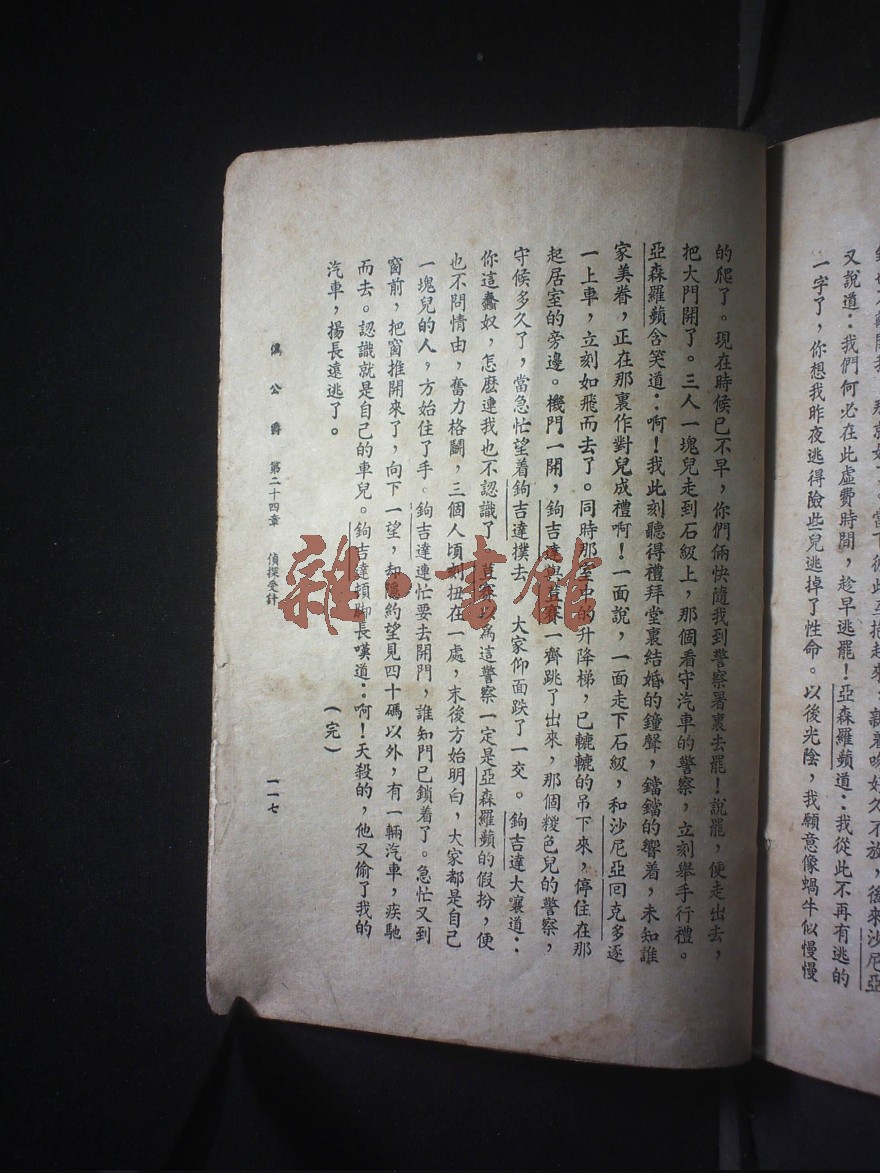 又說道：我們何必在此虛費時間，趁早逃罷！亞森羅蘋道：我從此不再有逃的
一字了，你想我昨夜逃得險些兒逃掉了性命。以後光陰，我願意像蝸牛似慢慢
的爬了。現在時候已不早，你們倆快隨我到警察署裏去罷！說罷，便走出去，
把大門開了。三人一塊兒走到石級上，那個看守汽車的警察，立刻舉手行禮。
亞森羅蘋含笑道：啊！我此刻聽得禮拜堂裏結婚的鐘聲，鐺鐺的響着，未知誰
家美眷，正在那裏作對兒成禮啊！一面說，一面走下石級，和沙尼亞囘克多逐
一上車，立刻如飛而去了。同時那室中的升降梯，已轆轆的吊下來，停住在那
起居室的旁邊。機門一開，鉤吉達與荳賽一齊跳了出來，那個糉色兒的警察，
守候多久了，當急忙望着鉤吉達撲去　大家仰面跌了一交。鉤吉達大嚷道：
你這蠢奴，怎麼連我也不認識了　荳賽以為這警察一定是亞森羅蘋的假扮，便
也不問情由，奮力格鬭，三個人頃刻扭在一處，末後方始明白，大家都是自己
一塊兒的人，方始住了手。鉤吉達連忙要去開門，誰知門已鎖着了。急忙又到
窗前，把窗推開來了，向下一望，却隱約望見四十碼以外，有一輛汽車，疾馳
而去。認識就是自己的車兒。鉤吉達頓脚長嘆道：啊！天殺的，他又偷了我的
汽車，揚長遠逃了。
（完）
偽公爵　第二十四章　偵探受計
一一七
雜·書館